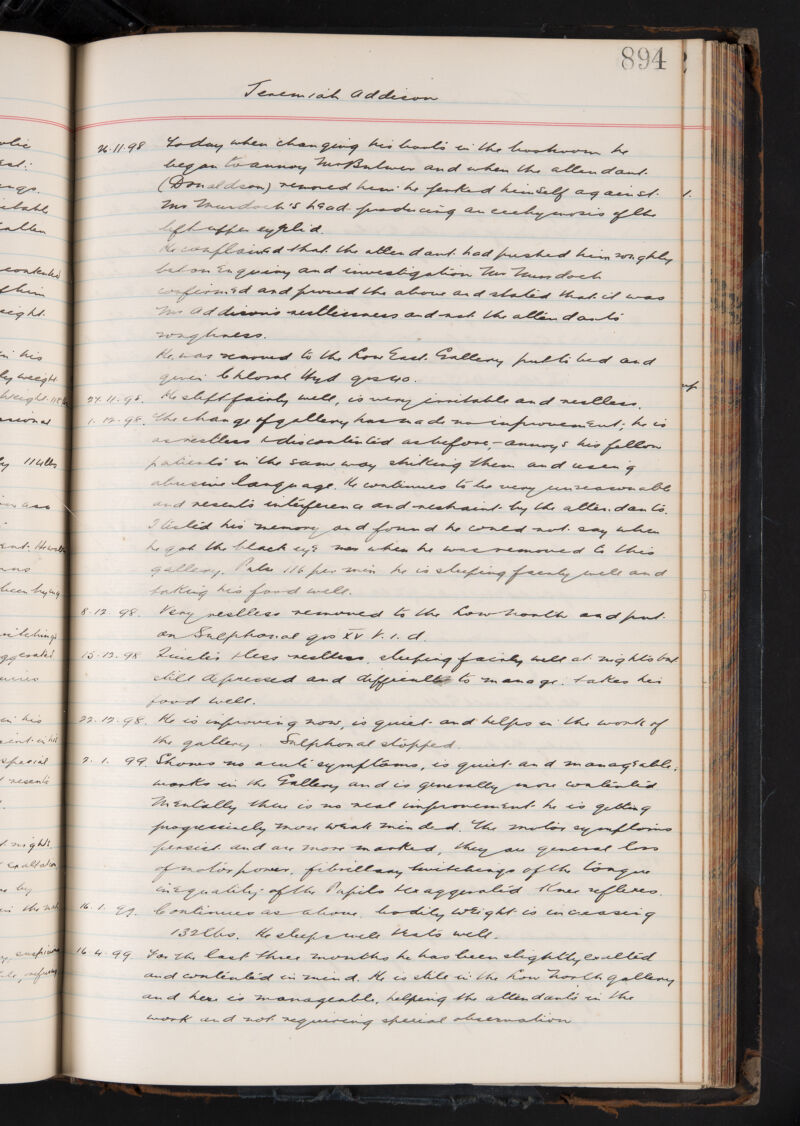 894
Jeremiah Addison
26.11.98 Today when changing his boots in the bootroom he
began to annoy Mr Bulwer and when the attendant
(Donaldson) removed him he jerked himself against
Mr Murdoch's head producing an ecchymosis of the
left upper eyelid.
He complained that the attendant had pushed him roughly
but on enquiry and investigation Mr Murdoch
confirmed and proved the above and stated that it was
Mr Addison's restlessness and not the attendant's
roughness.
He was removed to the Low East Gallery put to bed and
given Chloral Hyd grs 40.
27.11.98. He slept fairly well, is very irritable and restless.
1.12.98. The change of gallery has made no improvement; he is
as restless & discontented as before, - annoys his fellow
patients in the same way striking them and using
abusive language. He continues to be very unreasonable
and resents interference and restraint by the attendants.
I tested his memory and found he could not say when
he got the black eye nor when he was removed to this
gallery. Pulse 116 per min he is sleeping fairly well and
taking his food well.
8.12.98. Very restless removed to the Low North and put
on Sulphonal grs XV t.i.d.
15.12.98 Quieter & less restless, sleeping fairly well at nights but
still depressed and difficult to manage. takes his
food well.
22.12.98. He is improving now, is quiet and helps in the work of
the gallery. Sulphonal stopped.
2.1.99. Shows no acute symptoms, is quiet and manageable;
works in the Gallery and is generally more contented
Mentally there is no real improvement he is getting
progressively more weak minded. The motor symptoms
persist and are more marked, they are general loss
of motor power, fibrillary twitchings of the tongue
inequality of the Pupils & exaggerated Knee reflexes.
16.1.99. Continues as above, bodily weight is increasing
132 lbs. He sleeps well & eats well.
16.4.99 For the last three months he has been slightly exalted
and contented in mind. He is still in the Low North gallery
and here is manageable, helping the attendants in the
work and not requiring special observation